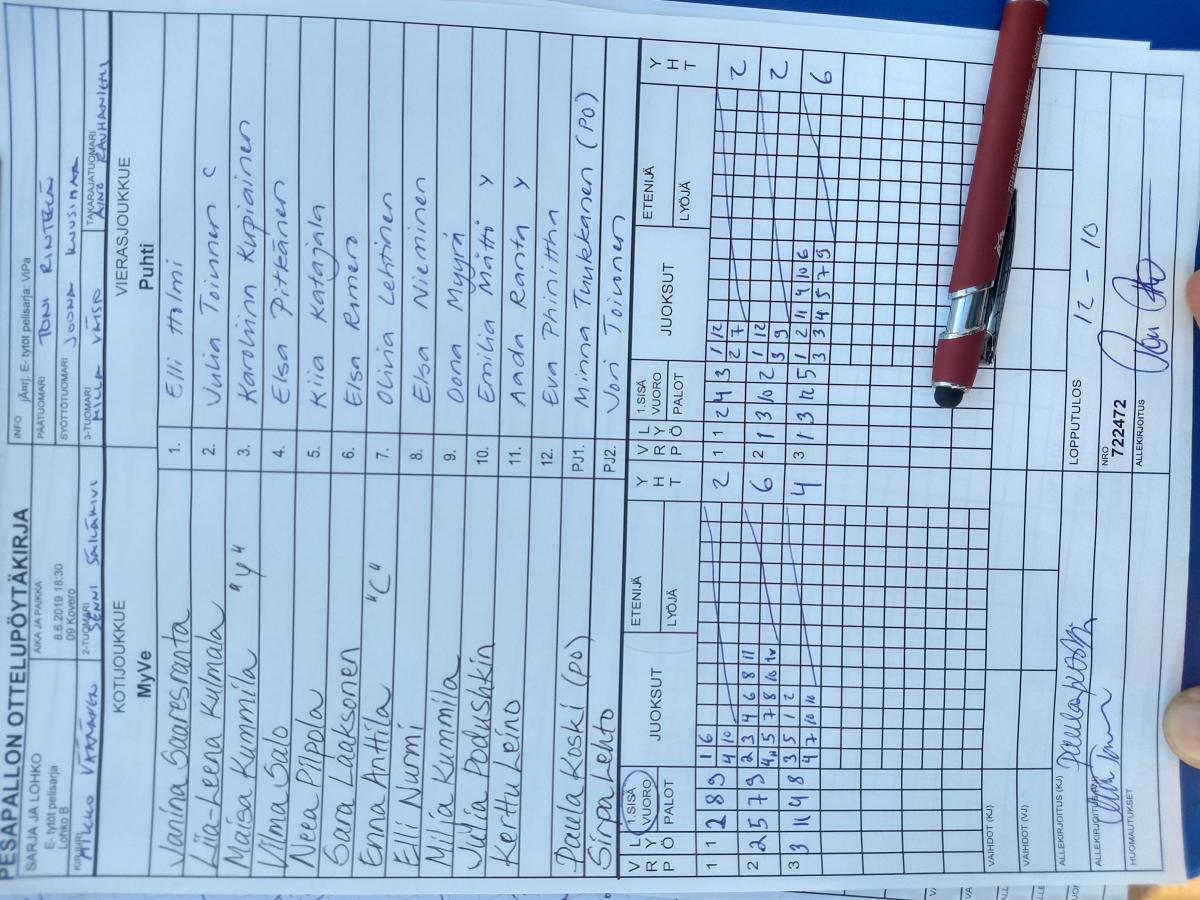 PESÄPALLON OTTELUPÖYTÄKIRJA
SARJA JA LOHKO
E- tytöt pelisarja
Lohko B
AIKA JA PAIKKA
8.6.2019 18:30
09 Kovero
INFO jÄrrj. E- tytöt pelisarja: ViPa
PÄÄTUOMARI TONI RINTELÄ
SYÖTTÖTUOMARI JOONA KUUSIMAA
KIRJURI
2-TUOMARI SENNI
3-TUOMARI
TAKARAJATUOMARI AINO RAUHANIEMI
KOTIJOUKKUE
MyVe
VIERASJOUKKUE
Puhti
Vanina Saaresranta 1. Elli Holmi
Liia-Leena Kulmala 2. Julia Toivonen C
Maisa Kummila "Y" 3. Karoliina Kupiainen
Vilma Salo 4. Elsa Pitkänen
Neea Piipola 5. Kiia Katajala
Sara Laaksonen 6. Elsa Romero
Enna Anttila "C" 7. Olivia Lehtinen
Elli Nurmi 8. Elsa Nieminen
Milja Kummila 9. Oona Myyrä
Julia Podushkin 10. Emilia Mätti Y
Kerttu Leino 11. Aada Ranta Y
12. Eva
Paula Koski (PO) PJ1. Minna Turkkanen (PO)
Sirpa Lehto PJ2. Jori Toivonen
V R P
L Y Ö
1.SISÄ VUORO
PALOT
JUOKSUT
ETENIJÄ
LYÖJÄ
Y H T
V R P
L Y Ö
1.SISÄ VUORO
PALOT
JUOKSUT
ETENIJÄ
LYÖJÄ
Y H T
1 1 2 8 9 1 6 2 1 1 2 4 3 1 12 2
4 10 2 7
2 2 5 7 9 2 3 4 6 8 11 6 2 1 3 10 2 1 12 2
5 7 8 10 3 9
3 3 11 4 8 3 5 1 2 4 3 1 3 12 5 1 2 11 4 10 6 6
4 7 10 3 3 4 5 7 9
VAIHDOT (KJ)
VAIHDOT (VJ)
ALLEKIRJOITUS (KJ) Paula Koski
LOPPUTULOS 12 - 10
ALLEKIRJOITUS
NRO
722472
HUOMAUTUKSET
ALLEKIRJOITUS